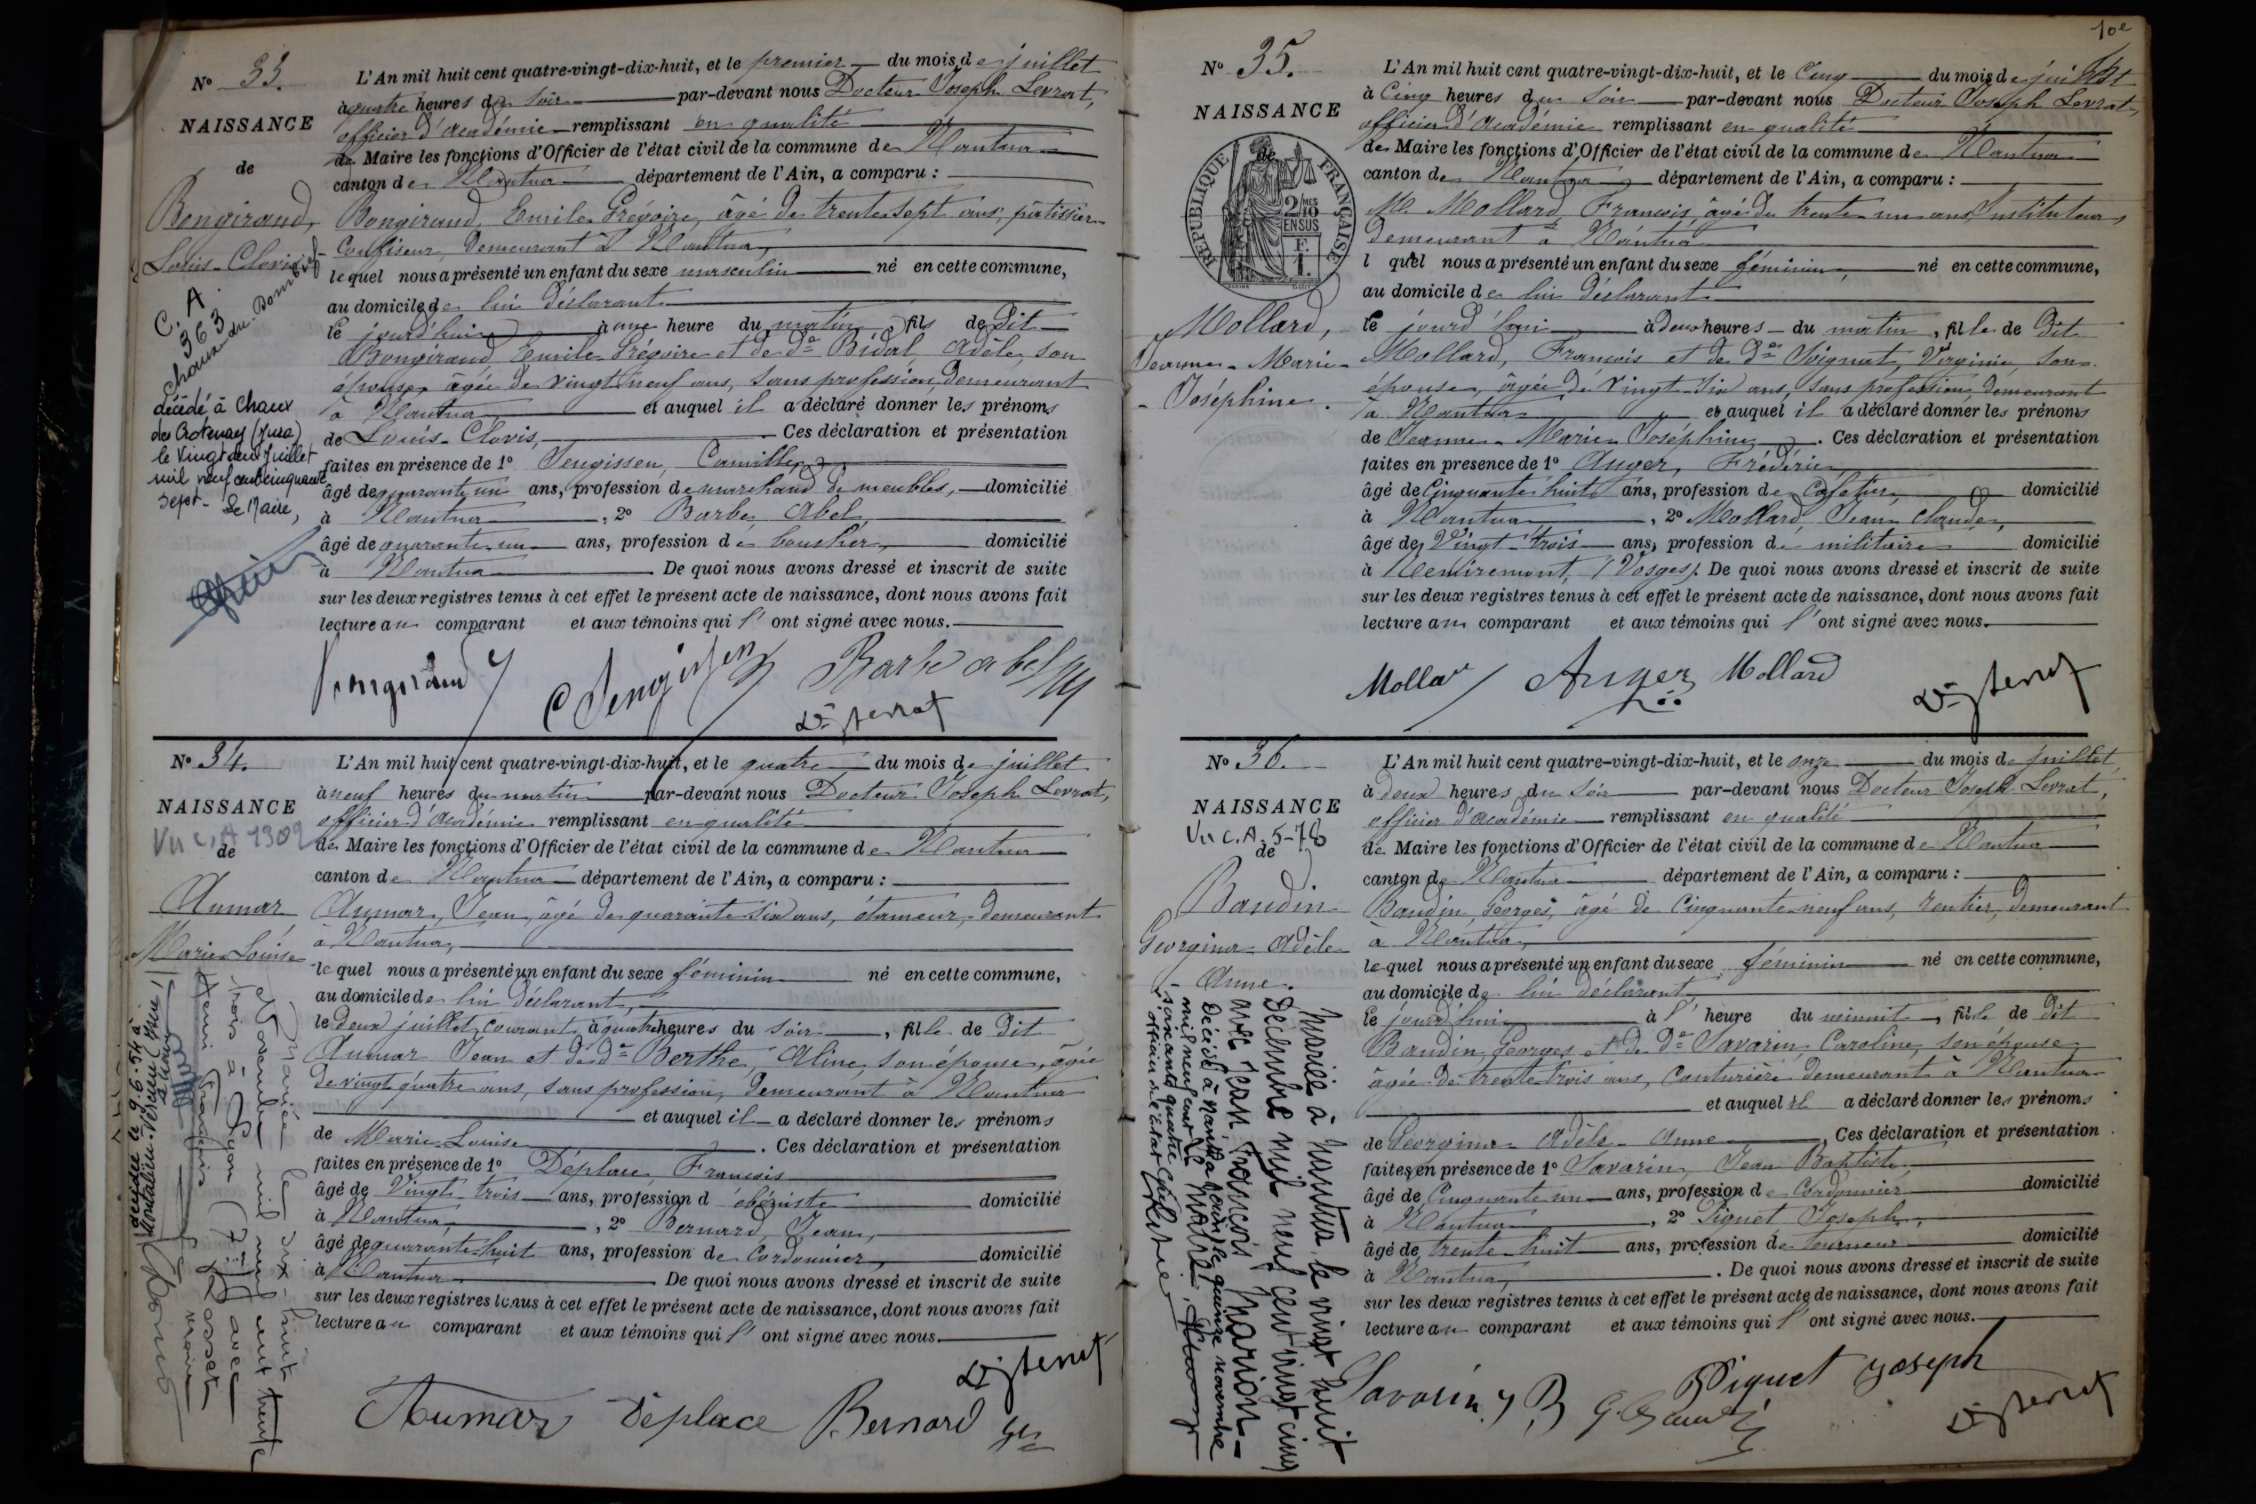 N° 33.
NAISSANCE
de
Bongiraud,
Louis-Clovis
C. A.
363
Chaux du Dombief
décédé à Chaux
des Crotenay (Jura)
le vingt deux Juillet
mil neuf cent cinquante
sept - Le Maire,
L'An mil huit cent quatre-vingt-dix-huit, et le premier du mois de juillet
à quatre heures du soir par-devant nous Docteur Joseph Levrat,
officier d'académie remplissant en qualité
de Maire les fonctions d'Officier de l'état civil de la commune de Nantua
canton de Nantua département de l'Ain, a comparu :
Bongiraud, Emile Grégoire, âgé de trente sept ans, pâtissier
confiseur, demeurant à Nantua,
lequel nous a présenté un enfant du sexe masculin né en cette commune,
au domicile de lui déclarant
le jourd'hui à une heure du matin, fils de Dit
Bongiraud, Emile Grégoire et de de Bidal, Adèle, son
épouse, âgée de vingt neuf ans, sans profession, demeurant
à Nantua et auquel il a déclaré donner les prénoms
de Louis-Clovis, Ces déclaration et présentation
faites en présence de 1° Jengissen, Camille,
âgé de quarante un ans, profession de marchand de meubles, domicilié
à Nantua, 2° Barbe, Abel,
âgé de quarante un ans, profession de boucher, domicilié
à Nantua De quoi nous avons dressé et inscrit de suite
sur les deux registres tenus à cet effet le présent acte de naissance, dont nous avons fait
lecture au comparant et aux témoins qui l' ont signé avec nous.
Bongiraud C Jengissen Barbe abel
Dr J Levrat
N° 34.
NAISSANCE
Vu C.A 1302
de
Aumar
Marie-Louise
Mariée le dix-huit
Novembre mil neuf cent trente
trois à Lyon (7e) avec
Rosset
Henri François
maire
décédée le 9.6.54 à
Montalieu-Vercieu (Isère)
L'An mil huit cent quatre-vingt-dix-huit, et le quatre du mois de juillet
à neuf heures du matin par-devant nous Docteur Joseph Levrat,
officier d'académie remplissant en qualité
de Maire les fonctions d'Officier de l'état civil de la commune de Nantua
canton de Nantua département de l'Ain, a comparu :
Aumar, Jean, âgé de quarante six ans, étameur, demeurant
à Nantua,
lequel nous a présenté un enfant du sexe féminin né en cette commune,
au domicile de lui déclarant,
le deux juillet courant à quatre heures du soir, fille de Dit
Aumar Jean et de de Berthe, Aline, son épouse, âgée
de vingt quatre ans, sans profession, demeurant à Nantua
et auquel il a déclaré donner les prénoms
de Marie-Louise. Ces déclaration et présentation
faites en présence de 1° Déplace, François
âgé de Vingt-trois ans, profession d'ébéniste domicilié
à Nantua, 2° Bernard, Jean,
âgé de quarante-huit ans, profession de Cordonnier, domicilié
à Nantua De quoi nous avons dressé et inscrit de suite
sur les deux registres tenus à cet effet le présent acte de naissance, dont nous avons fait
lecture au comparant et aux témoins qui l' ont signé avec nous.
Aumar Déplace Bernard
Dr J Levrat
10e
N° 35.
NAISSANCE
de
RÉPUBLIQUE FRANÇAISE
2/10 MES
EN SUS
F.
1.
Mollard,
Jeanne-Marie-
Joséphine.
L'An mil huit cent quatre-vingt-dix-huit, et le Cinq du mois de juillet
à Cinq heures du soir par-devant nous Docteur Joseph Levrat,
officier d'Académie remplissant en qualité
de Maire les fonctions d'Officier de l'état civil de la commune de Nantua
canton de Nantua département de l'Ain, a comparu :
M. Mollard, François, âgé de trente un ans, Instituteur,
demeurant à Nantua
l quel nous a présenté un enfant du sexe féminin né en cette commune,
au domicile de lui déclarant
le jourd'hui à Deux heures du matin, fille de Dit
Mollard, François et de de Soignat, Virginie, son
épouse, âgée de vingt-six ans, sans profession, demeurant
à Nantua et auquel il a déclaré donner les prénoms
de Jeanne-Marie-Joséphine. Ces déclaration et présentation
faites en présence de 1° Auger, Frédéric
âgé de Cinquante huit ans, profession de Cafetier domicilié
à Nantua, 2° Mollard, Jean Claude,
âgé de Vingt-trois ans, profession de militaire domicilié
à Remiremont, (Vosges). De quoi nous avons dressé et inscrit de suite
sur les deux registres tenus à cet effet le présent acte de naissance, dont nous avons fait
lecture au comparant et aux témoins qui l' ont signé avec nous.
Mollard Auger Mollard
Dr J Levrat
N° 36.
NAISSANCE
Vu C.A. 5-78
de
Baudin
Georgina-Adèle
Anne.
Mariée à Nantua le vingt huit
Décembre mil neuf cent vingt cinq
avec Jean François MARION-
Décédée à Nantua le quinze novembre
mil neuf cent
soixante quatre
L'officier de l'Etat Civil
L'An mil huit cent quatre-vingt-dix-huit, et le onze du mois de juillet
à deux heures du soir par-devant nous Docteur Joseph Levrat,
officier d'académie remplissant en qualité
de Maire les fonctions d'Officier de l'état civil de la commune de Nantua
canton de Nantua département de l'Ain, a comparu :
Baudin, Georges, âgé de Cinquante-neuf ans, rentier, demeurant
à Nantua,
lequel nous a présenté un enfant du sexe féminin né en cette commune,
au domicile de lui déclarant
le jourd'hui à l' heure du minuit, fille de Dit
Baudin, Georges et de de Savarin, Caroline, son épouse,
âgée de trente-trois ans, Couturière demeurant à Nantua
et auquel il a déclaré donner les prénoms
de Georgina-Adèle-Anne, Ces déclaration et présentation
faites en présence de 1° Savarin, Jean Baptiste,
âgé de Cinquante un ans, profession de Cordonnier domicilié
à Nantua, 2° Piquet Joseph,
âgé de trente-huit ans, profession de tourneur domicilié
à Nantua,. De quoi nous avons dressé et inscrit de suite
sur les deux registres tenus à cet effet le présent acte de naissance, dont nous avons fait
lecture au comparant et aux témoins qui l' ont signé avec nous.
Savarin J B G. Baudin Piquet Joseph
Dr J Levrat